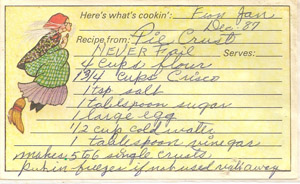 Here's what's cookin': Fun Jan
Dec '87
Recipe from: Pie Crust
NEVER Fail Serves:
4 cups flour
1 3/4 cups Crisco
1 tsp salt
1 tablespoon sugar
1 large egg
1/2 cup cold water
1 tablespoon vinegar
makes 5 to 6 single crusts.
Put in freezer if not used right away